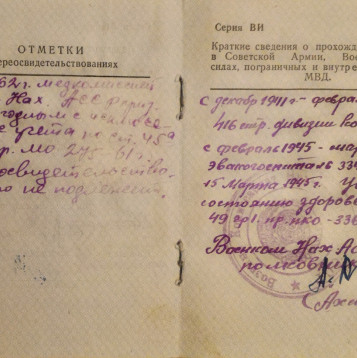 ОТМЕТКИ
переосвидетельствованиях
62 г. медкомиссией
Нах. АССР приз
годным с исключе
с учета по ст. 45а
пр. МО 275-61 г.
освидетельствова
не подлежит.
Серия ВИ
Краткие сведения о прохожд
в Советской Армии, Вое
силах, пограничных и внутре
МВД.
С декабр 1941 г - феврал
416 стр. дивизии
с февраль 1945 - мар
Эвакогоспиталь 334
15 марта 1945 г.
состоянию здоровь
49 гр I пр. нко - 336
Военком Нах АС
полковник